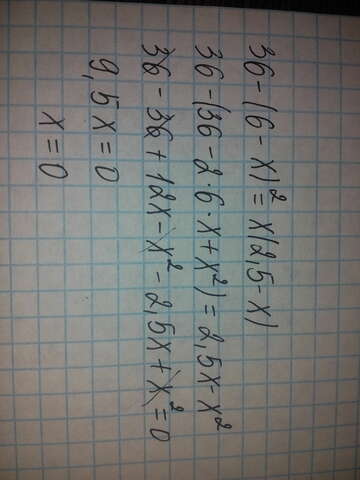 36-(6-x)²=x(2,5-x)
36-(36-2·6·x+x²)=2,5x-x²
36-36+12x-x²-2,5x+x²=0
9,5x=0
x=0